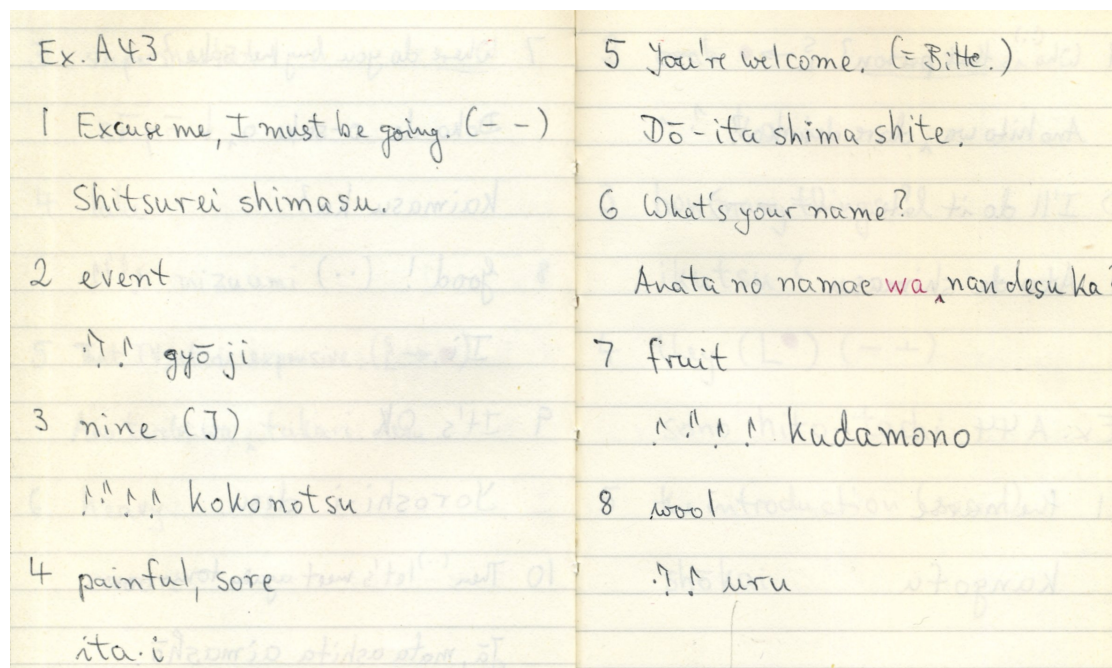 Ex. A43
1 Excuse me, I must be going. (– –)
Shitsurei shimasu.
2 event
gyōji
3 nine (J)
kokonotsu
4 painful, sore
ita·i
5 You're welcome. (= Bitte.)
Dō-ita shimashite.
6 What's your name?
Anata no namae wa nan desu ka?
7 fruit
kudamono
8 wool
uru